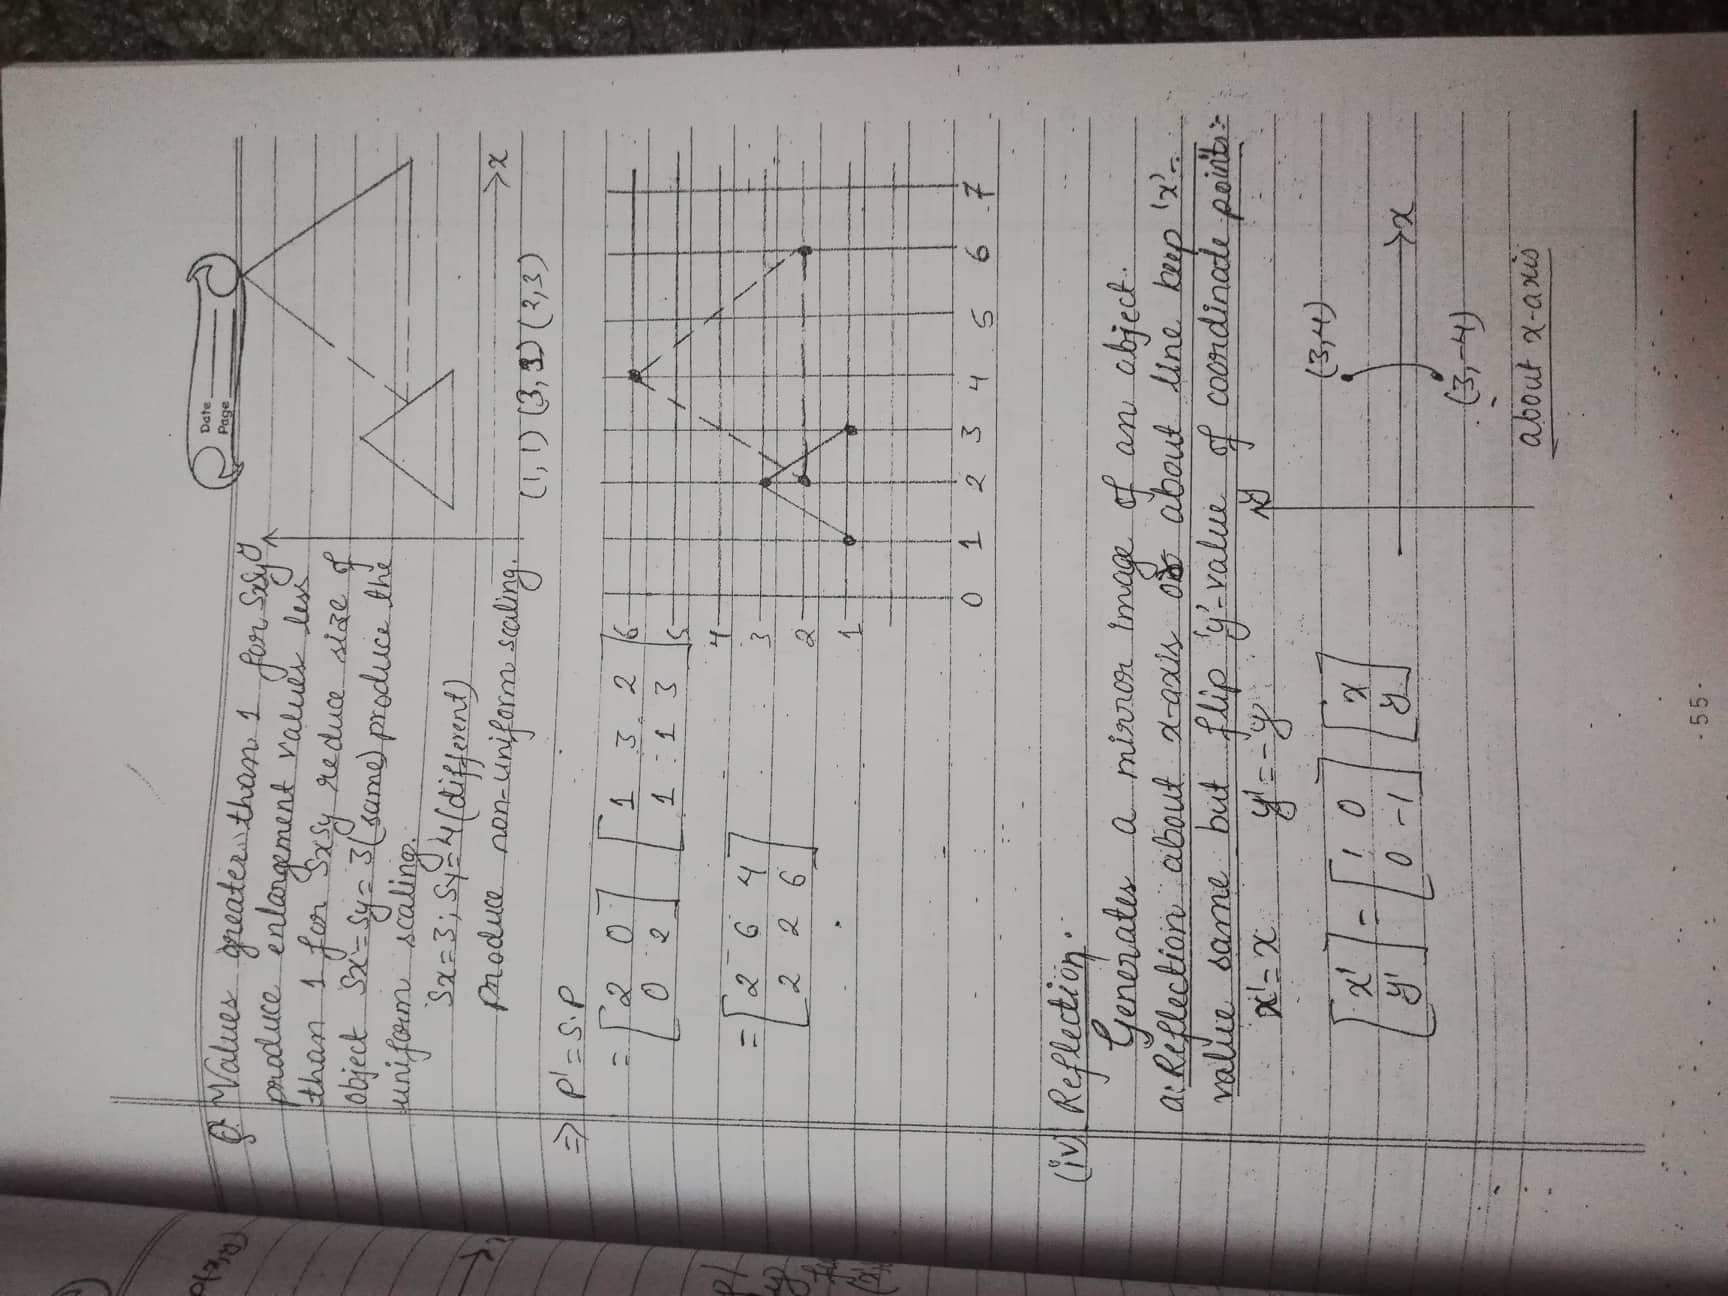 Date
Page
Q. Values greater than 1 for SxSy
produce enlargement values less
than 1 for SxSy reduce size of
object Sx=Sy=3(same) produce the
uniform scaling.
Sx=3; Sy=4(different)
produce non-uniform scaling.
y
x
(1,1) (3,1) (2,3)
=> P'=S.P
= [2 0 [1 3 2
0 2] 1 1 3]
= [2 6 4
2 2 6]
6
5
4
3
2
1
0 1 2 3 4 5 6 7
(iv) Reflection.
Generates a mirror image of an object.
a: Reflection about x-axis or about line keep 'x'-
value same but flip 'y'-value of coordinate points:-
x'=x y'=-y
[x' = [1 0 [x
y'] 0 -1] y]
y
(3,4)
x
(3,-4)
about x-axis
-55-